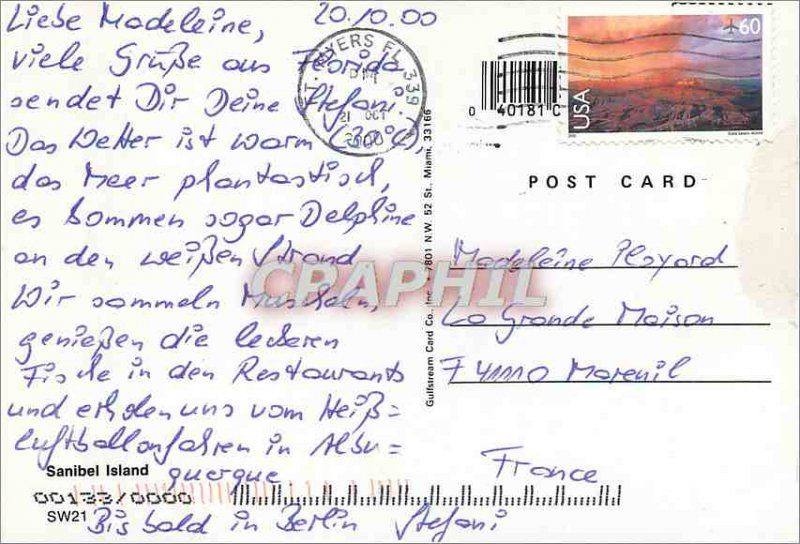 Liebe Madeleine, 20.10.00
viele Grüße aus Florida
sendet Dir Deine Stefani.
Das Wetter ist warm (30°C),
das Meer phantastisch,
es kommen sogar Delphine
an den weißen Strand
Wir sammeln Muscheln,
genießen die leckeren
Fische in den Restaurants
und erholen uns vom Heiß=
luftballonfahren in Albu=
querque
Bis bald in Berlin Stefani
Sanibel Island
00133/0000
SW21
FT. MYERS FL 339
PM
21 OCT
2000
0 40181 C
60
USA
POST CARD
Gulfstream Card Co., Inc. • 7801 N.W. 52 St., Miami, 33166
Madeleine Playard
La Grande Maison
F 41110 Mareuil
France
CPAPHIL